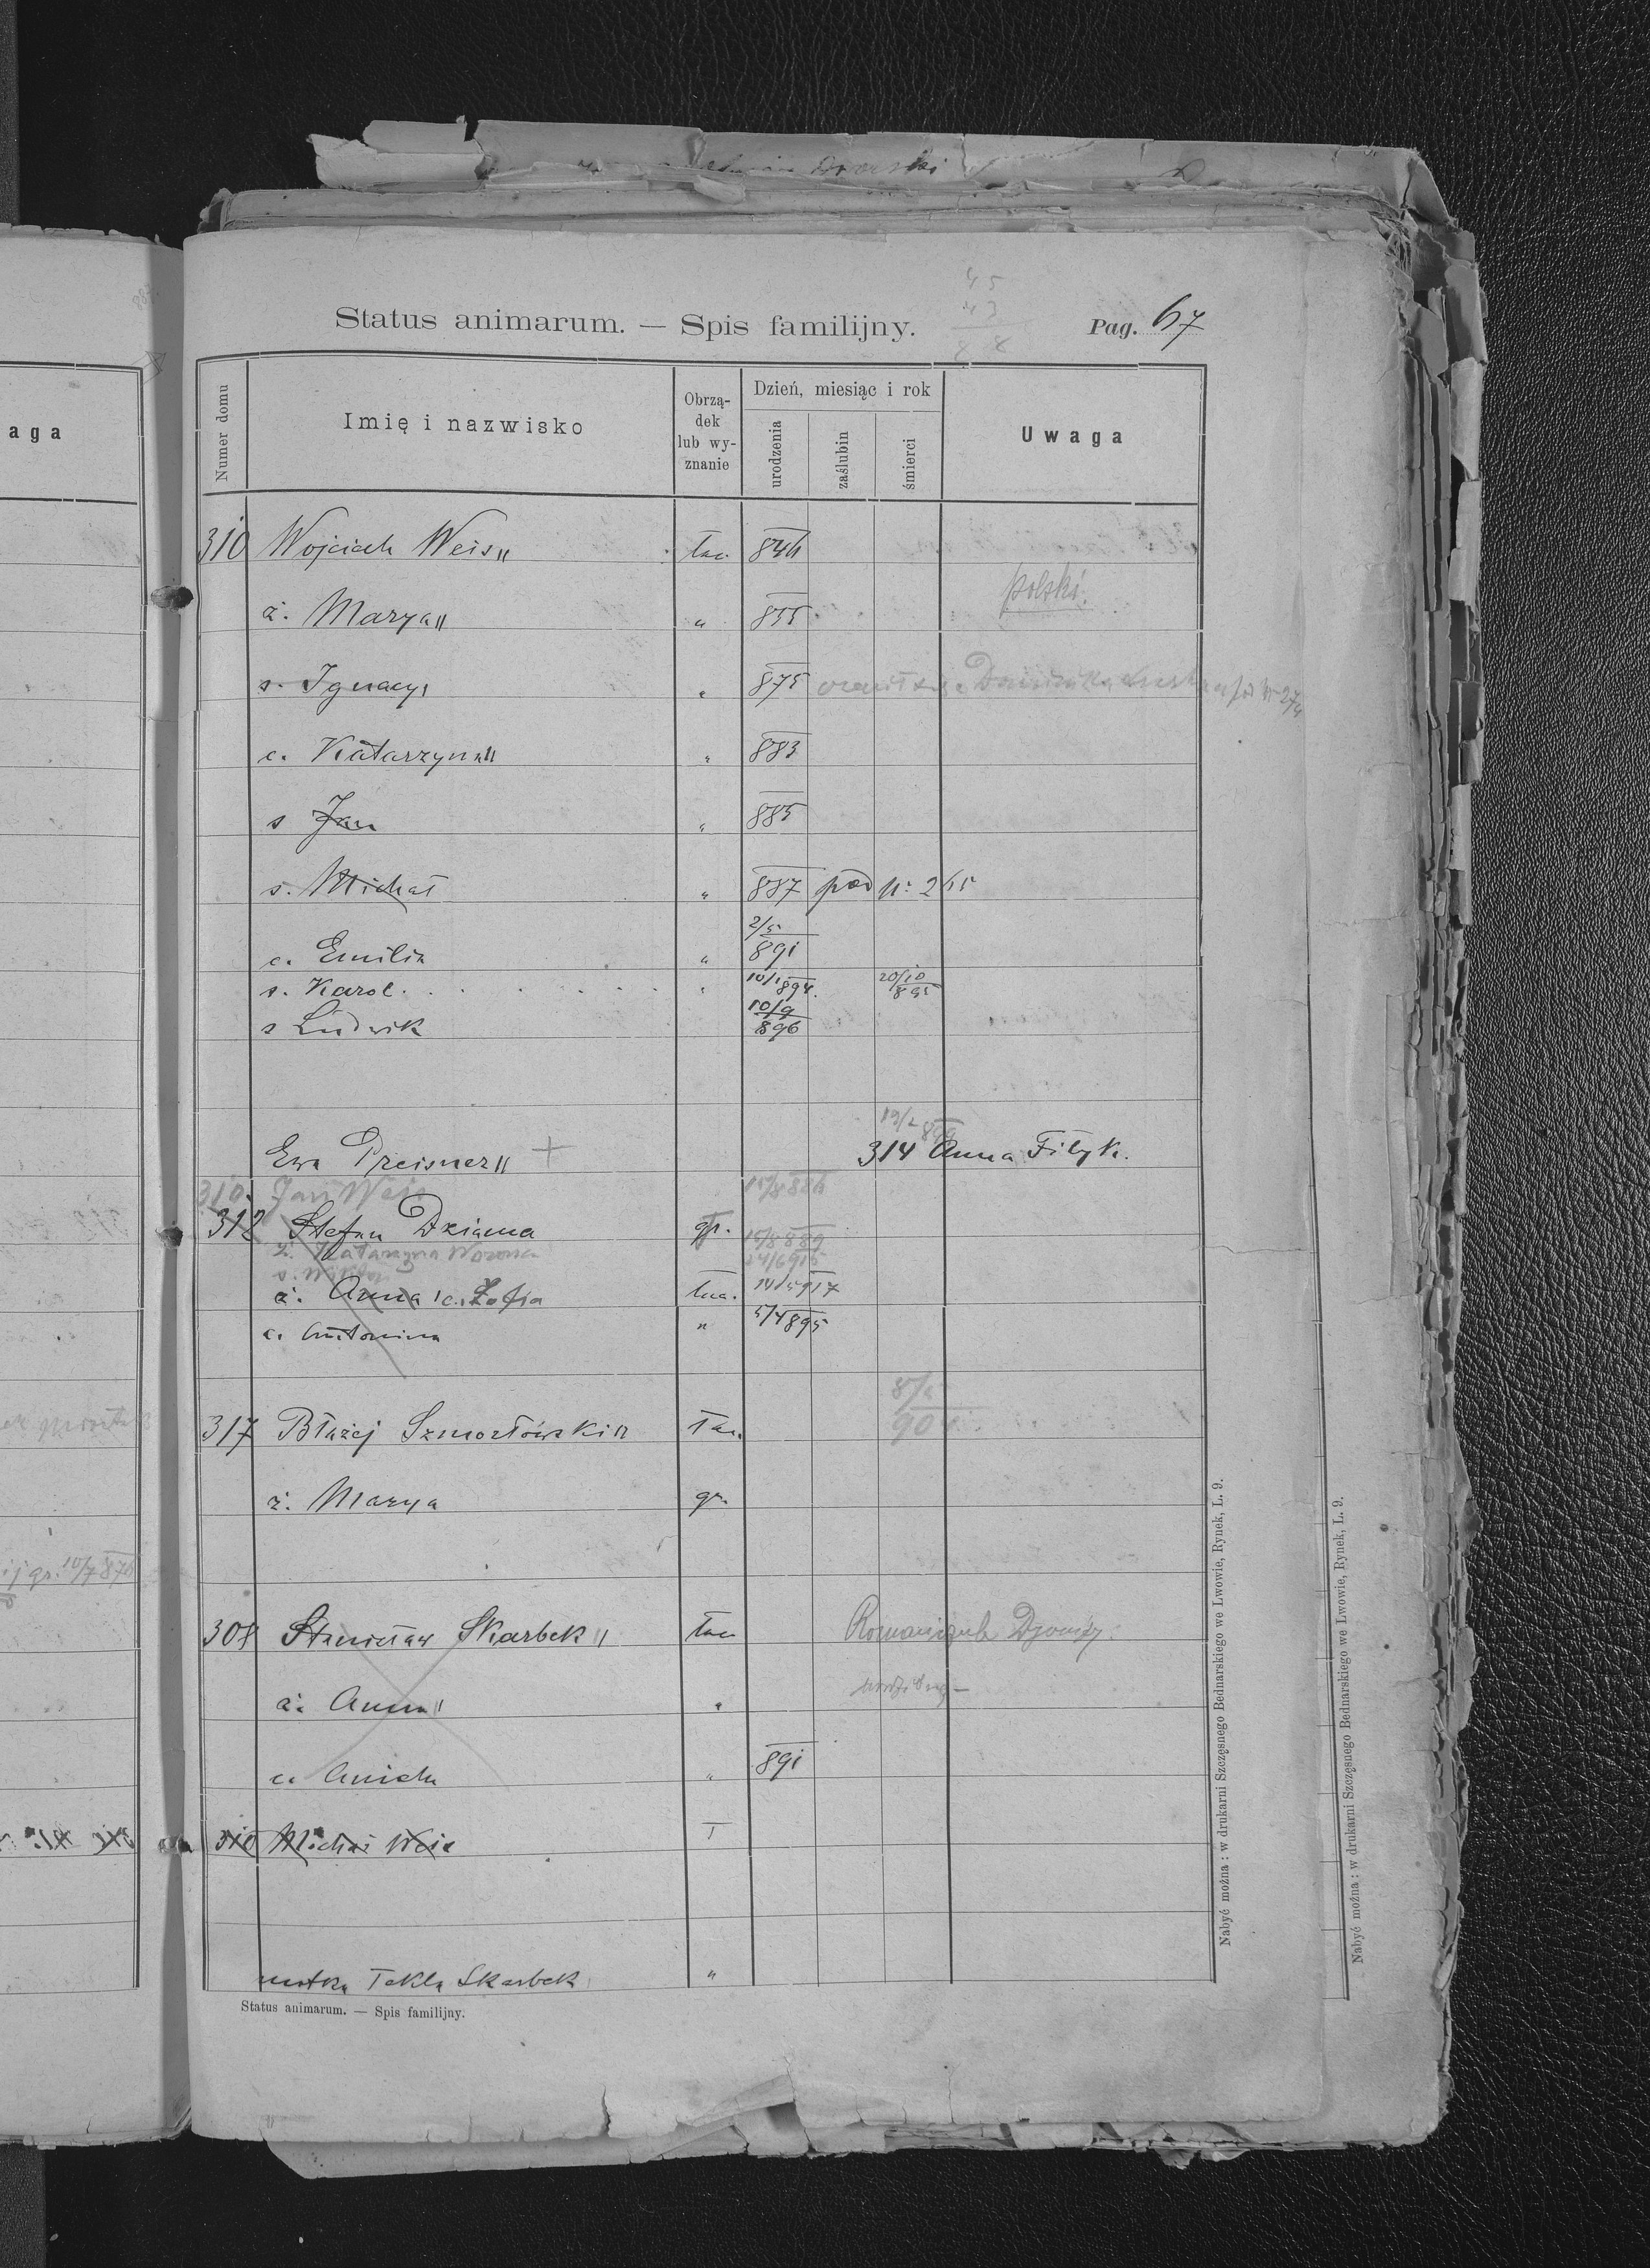 45
43
88
Status animarum. — Spis familijny.
Pag. 67
aga
Numer domu
Imię i nazwisko
Obrzą-
dek
lub wy-
znanie
Dzień, miesiąc i rok
urodzenia
zaślubin
śmierci
Uwaga
310 Wojciech Weis " łac. 846
polski.
ż. Marya " " 855
s. Ignacy " 875
c. Katarzyna " " 883
s Jan " 885
s. Michał " 887 pod N: 265
c. Emilia " 2/5 891
s. Karol " 10/1 894. 20/10 895
s Ludwik 10/9 896
Ewa Preisner " + 314 Anna Filyk.
310. Jan Weis 15/8 886
312 Stefan Dziama gr. 15/8 889
ż. Katarzyna 24/6 915
ż. Anna c. Zofia łac. 14/5 917
c. Antonina " 5/4 895
317 Błażej Szmorłówski " łac.
ż. Marya gr.
10/7 876
308 Stanisław Skarbek " łac
ż. Anna " "
c. Aniela " 891
310 Michał Weis ł
matka Tekla Skarbek "
Status animarum. — Spis familijny.
Nabyć można : w drukarni Szczęsnego Bednarskiego we Lwowie, Rynek, L. 9.
Nabyć można : w drukarni Szczęsnego Bednarskiego we Lwowie, Rynek, L. 9.